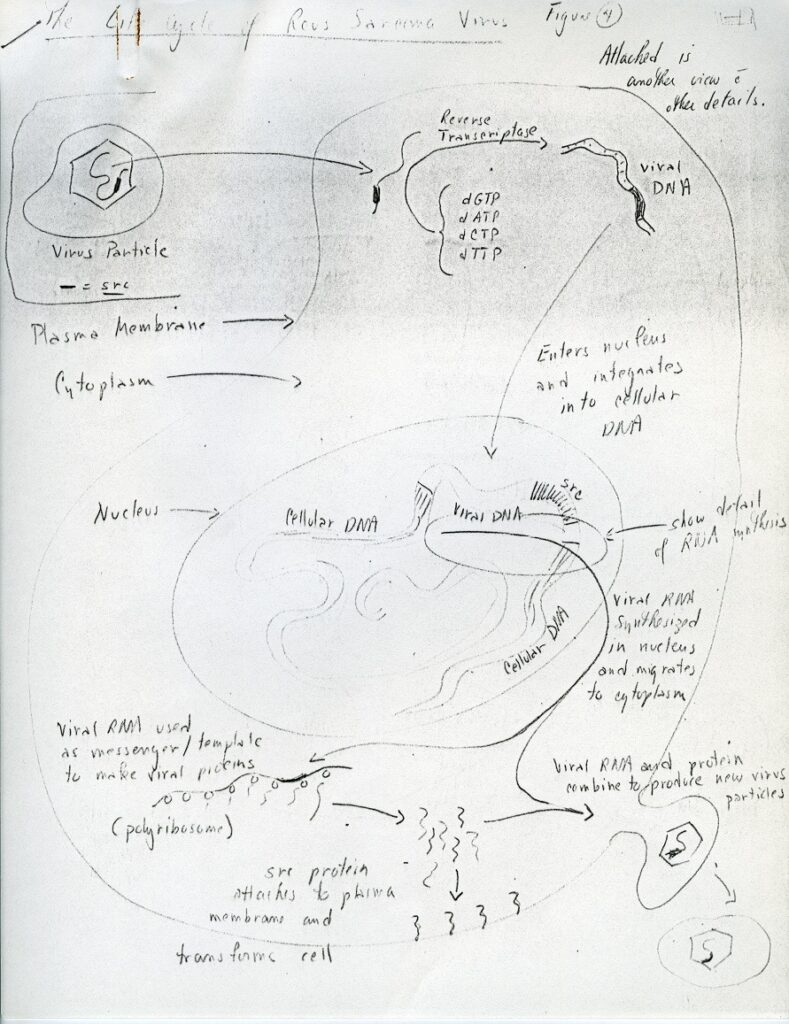 The Life Cycle of Rous Sarcoma Virus Figure (4)
Attached is
another view c̄
other details.
Reverse
Transcriptase
Viral
DNA
dGTP
dATP
dCTP
dTTP
Virus Particle
= src
Plasma Membrane
Cytoplasm
Enters nucleus
and integrates
into cellular
DNA
Nucleus
Cellular DNA
Viral DNA
src
show detail
of RNA synthesis
Cellular DNA
Viral RNA
synthesized
in nucleus
and migrates
to cytoplasm
Viral RNA used
as messenger/template
to make viral proteins
(polyribosome)
Viral RNA and protein
combine to produce new virus
particles
src protein
attaches to plasma
membrane and
transforms cell